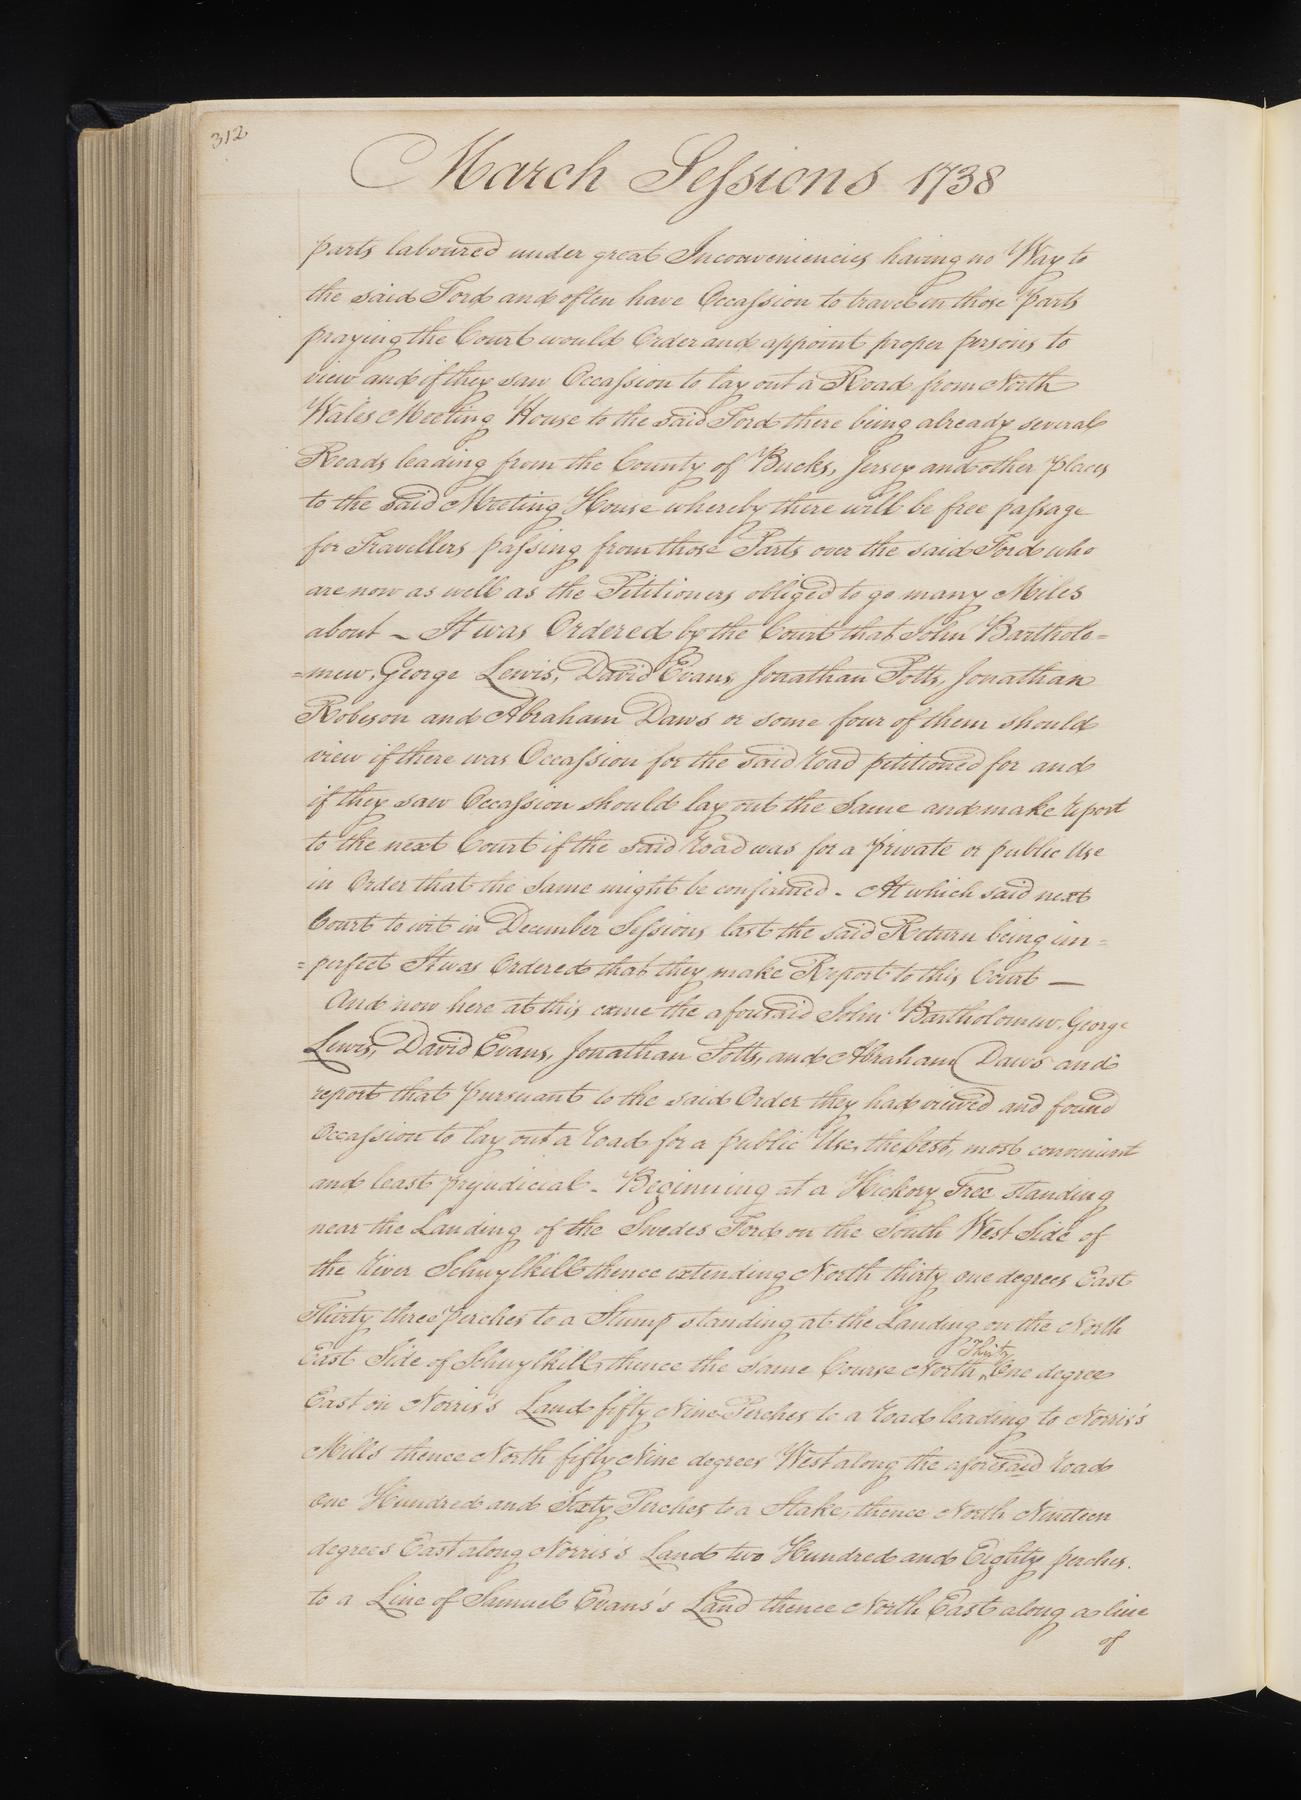 312
March Sessions 1738
parts laboured under great Inconveniencies having no Way to
the said Ford and often have Occassion to travel in those Parts
praying the Court would Order and appoint proper persons to
view and if they saw Occassion to lay out a Road from North
Wales Meeting House to the said Ford there being already several
Roads leading from the County of Bucks, Jersey and other places
to the said Meeting House whereby there will be free passage
for Travellers passing from those Parts over the said Ford who
are now as well as the Petitioners obliged to go many Miles
about – It was Ordered by the Court that John Bartholo=
=mew, George Lewis, David Evans, Jonathan Potts, Jonathan
Robeson and Abraham Daws or some four of them should
view if there was Occassion for the said road petitioned for and
if they saw Occassion should lay out the Same and make report
to the next Court if the said road was for a private or public Use
in Order that the Same might be confirmed – At which said next
Court to wit in December Sessions last the said Return being im=
=perfect It was Ordered that they make Report to this Court —
And now here at this came the aforesaid John Bartholomew, George
Lewis, David Evans, Jonathan Potts, and Abraham Daws and
report that pursuant to the said Order they had viewed and found
Occassion to lay out a road for a public Use, the best, most convenient
and least prejudicial – Beginning at a Hickory Tree standing
near the Landing of the Swedes Ford on the South West Side of
the River Schuylkill thence extending North thirty one degrees East
Thirty three perches to a Stump standing at the Landing on the North
East Side of Schuylkill, thence the same Course North ^Thirty One degree
East on Norris's Land fifty Nine Perches to a road leading to Norris's
Mills thence North fifty Nine degrees West along the aforesaid road
One Hundred and Sixty Perches to a Stake, thence North Nineteen
degrees East along Norris's Land two Hundred and Eighty perches.
to a Line of Samuel Evans's Land thence North East along a line
of